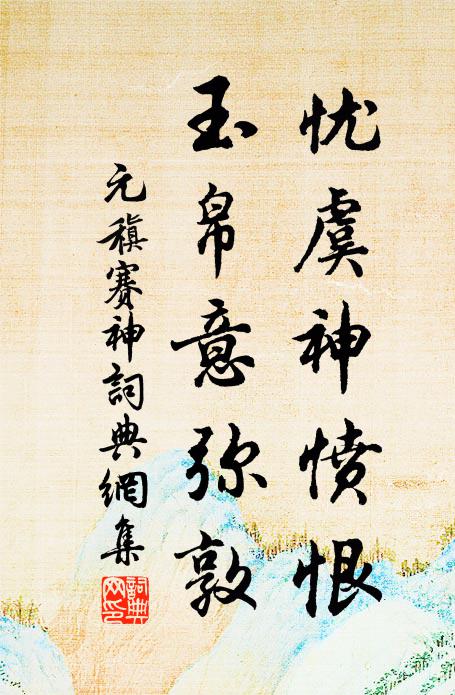 忧虞神愤恨
玉帛意弥敦
元稹赛神詞典網集
詞典网印